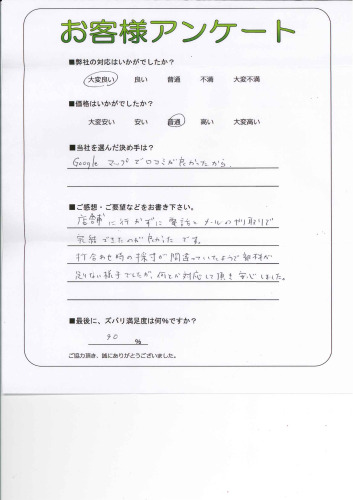 お客様アンケート
■弊社の対応はいかがでしたか?
大変良い 良い 普通 不満 大変不満
■価格はいかがでしたか?
大変安い 安い 普通 高い 大変高い
■当社を選んだ決め手は?
Google マップで口コミが良かったから
■ご感想・ご要望などをお書き下さい。
店舗に行かずに電話とメールのやり取りで
完結できたのが良かったです。
打合わせ時の採寸が間違っていたようで部材が
足りない様子でしたが、何とか対応して頂き安心しました。
■最後に、ズバリ満足度は何%ですか?
90 %
ご協力頂き、誠にありがとうございました。